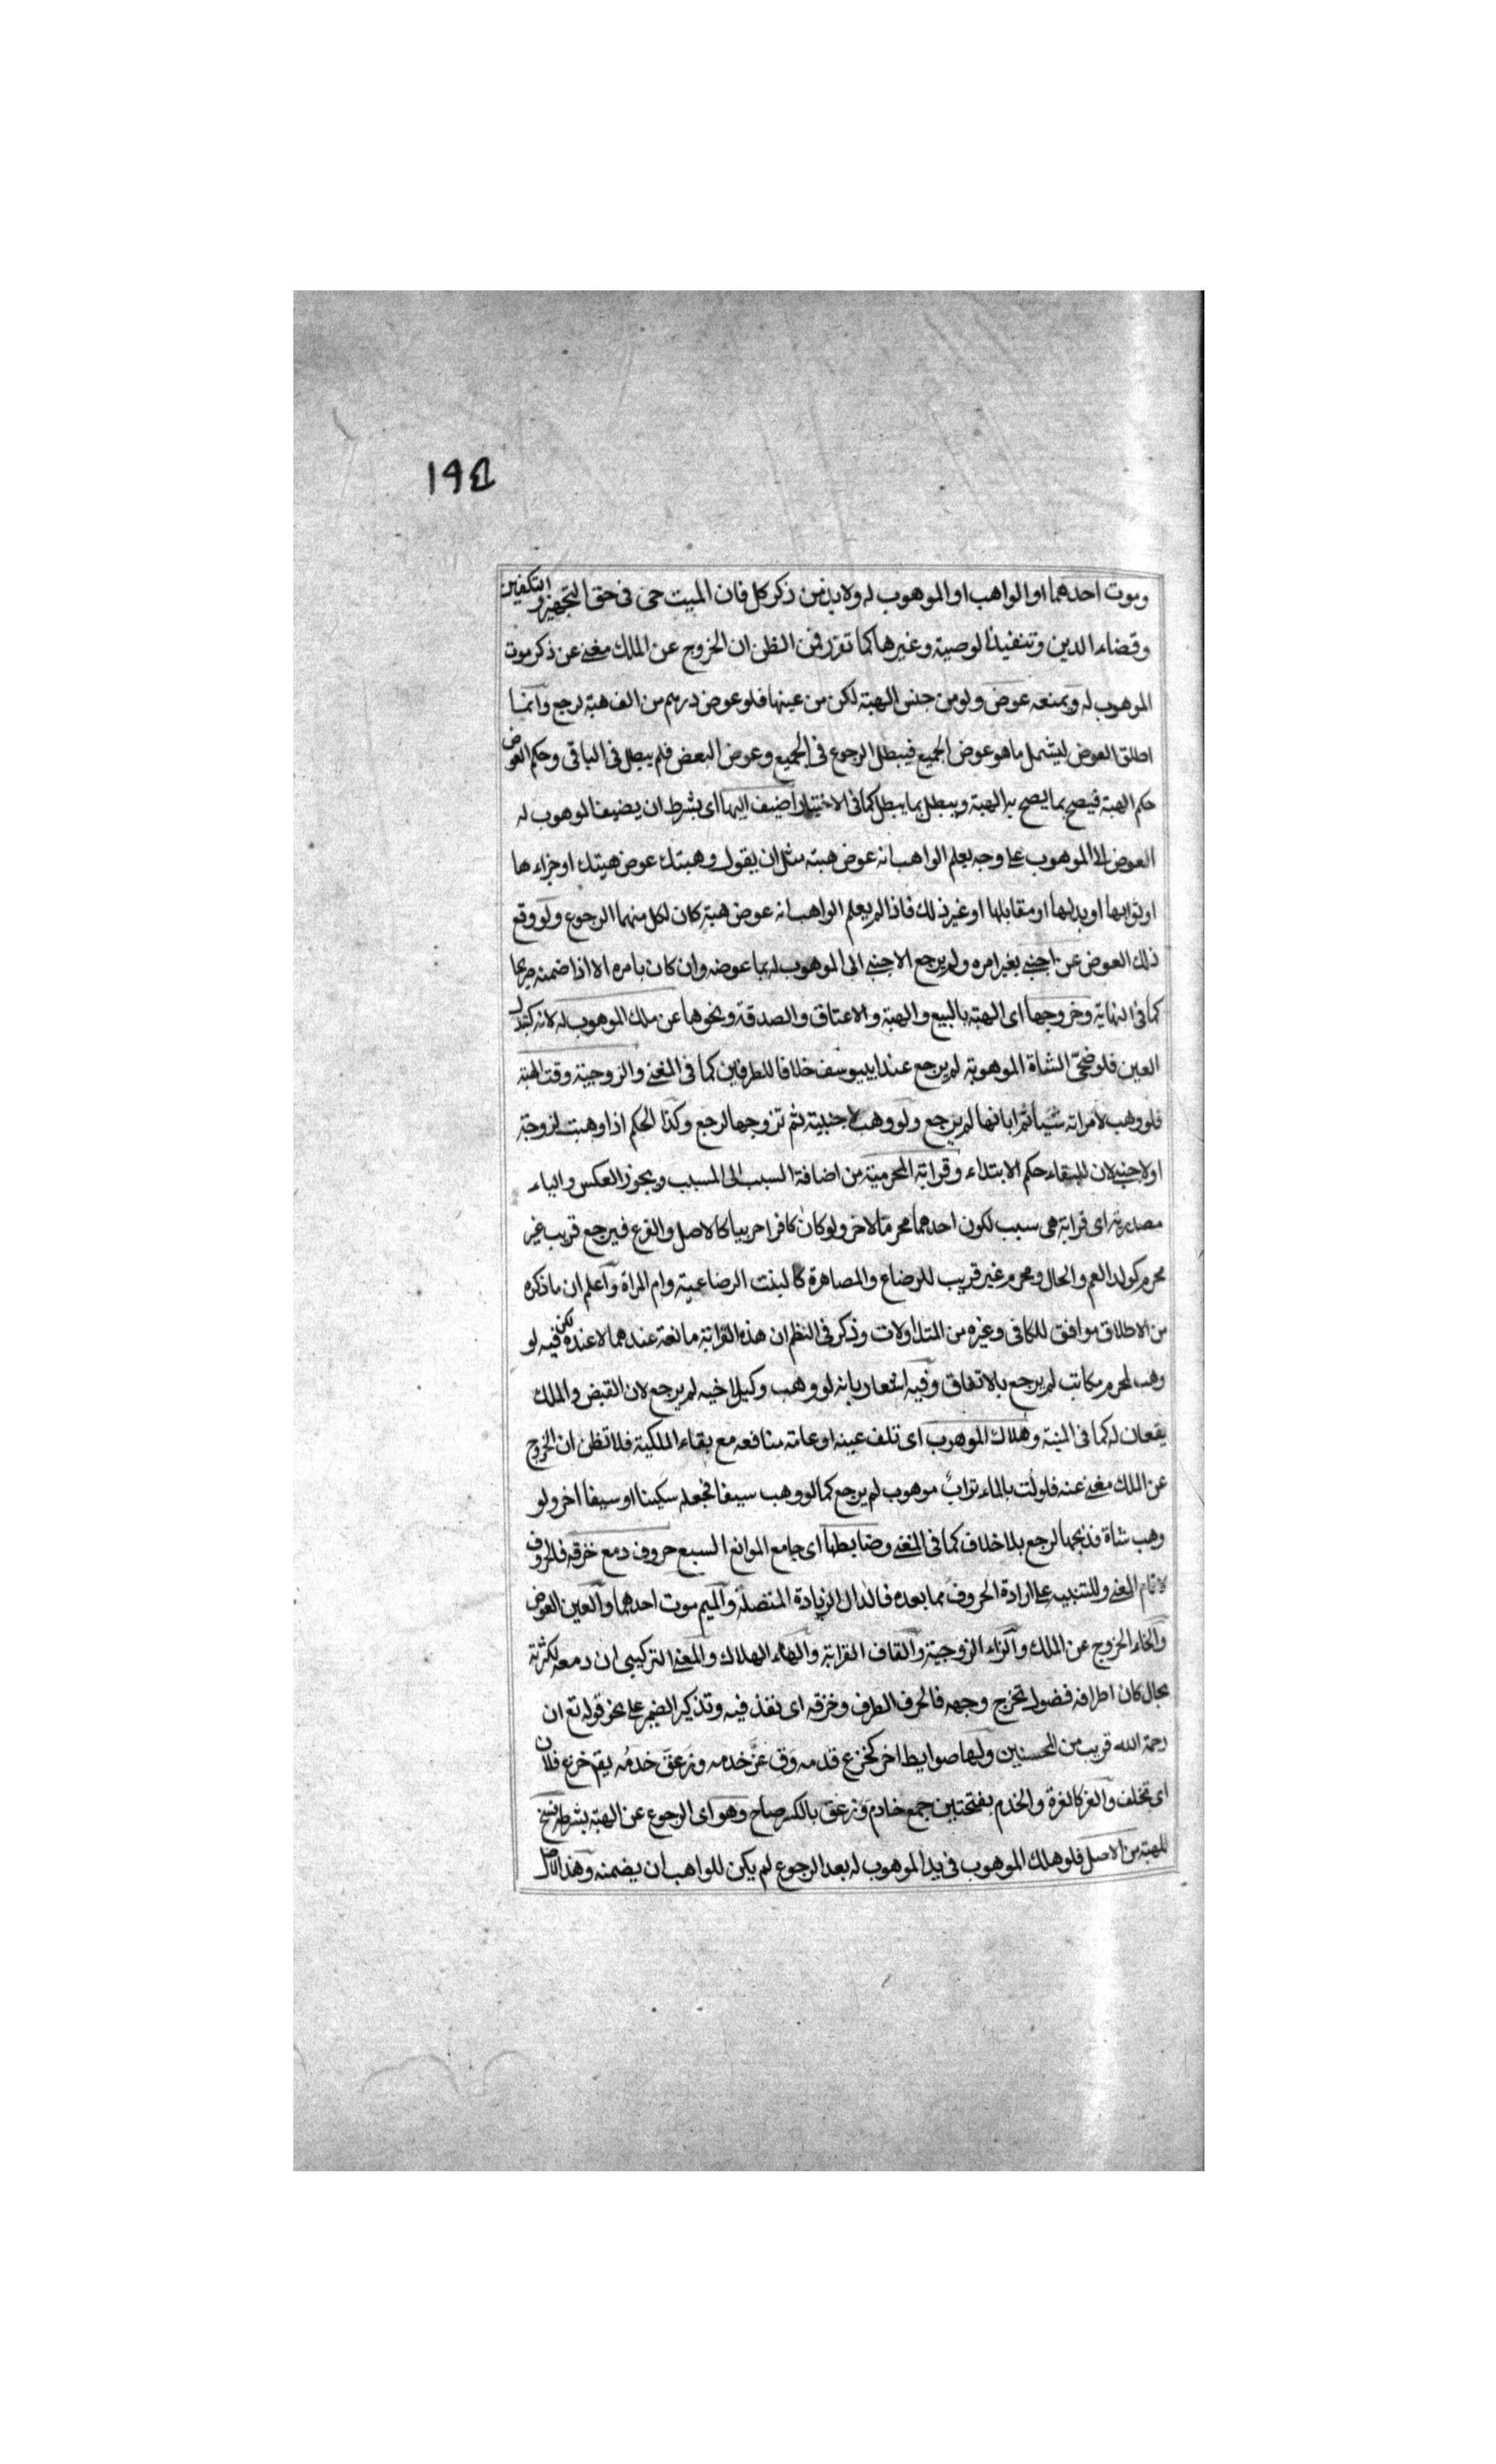 ١٩٤
وموت احدهما او الواهب او الموهوب له ولا بد من ذكر كل فان الميت حى فى حق التجهيز والتكفين
وقضاء الدين وتنفيذ الوصية وغيرها كما تقرر فمن الظن ان الخروج عن الملك مغنى عن ذكر موت
الموهوب له ويمنعه عوض ولو من جنس الهبة لكن من عينها فلو عوض درهم من الف هبة لرجع وانما
اطلق العوض ليشمل ما هو عوض الجميع فيبطل الرجوع فى الجميع وعوض البعض فلم يبطل فى الباقى وحكم العوض
حكم الهبة فيصح بما يصح به الهبة ويبطل بما يبطل كما فى الاختيار اضيف اليها اى بشرط ان يضيف الموهوب له
العوض الا الموهوب على وجه يعلم الواهب انه عوض هبته مثل ان يقول وهبتك عوض هبتك او جزاءها
او ثوابها او بدلها او مقابلها او غير ذلك فاذا لم يعلم الواهب انه عوض هبته كان لكل منهما الرجوع ولو وقع
ذلك العوض عن اجنبى بغير امره ولم يرجع الاجنبى الى الموهوب له بما عوضه وان كان بامره الا اذا ضمنه صريحا
كما فى النهاية وخروجها اى الهبة بالبيع والهبة والاعتاق والصدقة ونحوها عن ملك الموهوب له لانه كتبدل
العين فلو ضحى الشاة الموهوبة لم يرجع عند ابييوسف خلافا للطرفين كما فى المغنى والزوجية وقت الهبة
فلو وهب لامراته شيأ ثم ابانها لم يرجع ولو وهب لاجنبية ثم تزوجها لرجع وكذا الحكم اذا وهبت لزوجة
او لاجنبى لان للبقاء حكم الابتداء وقرابة المحرمية من اضافة السبب الى المسبب ويجوز العكس والياء
مصدرية اى قرابة هى سبب لكون احدهما محرما لاخر ولو كان كافرا حربيا كالاصل والفرع فيرجع قريب غير
محرم كولد العم والخال ومحرم غير قريب للرضاع والمصاهرة كالبنت الرضاعية وام المراة واعلم ان ما ذكره
من الاطلاق موافق للكافى وغيره من المتداولات وذكر فى النظم ان هذه القرابة مانعة عندهما لا عنده لكن فيه لو
وهب لمحرم مكاتب لم يرجع بالاتفاق وفيه اشعار بانه لو وهب وكيلا خيه لم يرجع لان القبض والملك
يقعان له كما فى المنية وهلاك الموهوب اى تلف عينه او عامة منافعه مع بقاء الملكية فلا تظن ان الخروج
عن الملك مغنى عنه فلو لُت بالماء ترابٌ موهوب لم يرجع كما لو وهب سيفا فجعله سكينا او سيفا اخر ولو
وهب شاة فذبحها لرجع بلا خلاف كما فى المغنى وضابطها اى جامع الموانع السبع حروف دمع خزقه فالحروف
لاتمام المعنى وللتنبيه على ارادة الحروف مما بعده فالدال الزيادة المتصلة والميم موت احدهما والعين العوض
والخاء الخروج عن الملك والزاء الزوجية والقاف القرابة والهاء الهلاك والمعنى التركيبى ان دمعه لكثرته
بحال كان اطرافه فضول تخرج وجهه فالحرف الطرف وخزقه اى نفذ فيه وتذكير الضمير على نحو قوله تع ان
رحمة الله قريب من المحسنين ولها ضوابط اخر كخزع قدمه وق عزّ خدمه وزعق خدمُه يقم خزع فلان
اى تخلف والعز كالغرة والخدم بفتحتين جمع خادم وزعق بالكسر صاح وهو اى الرجوع عن الهبة بشرطه فسخ
للهبة من الاصل فلو هلك الموهوب فى يد الموهوب له بعد الرجوع لم يكن للواهب ان يضمنه وهذا الاصل